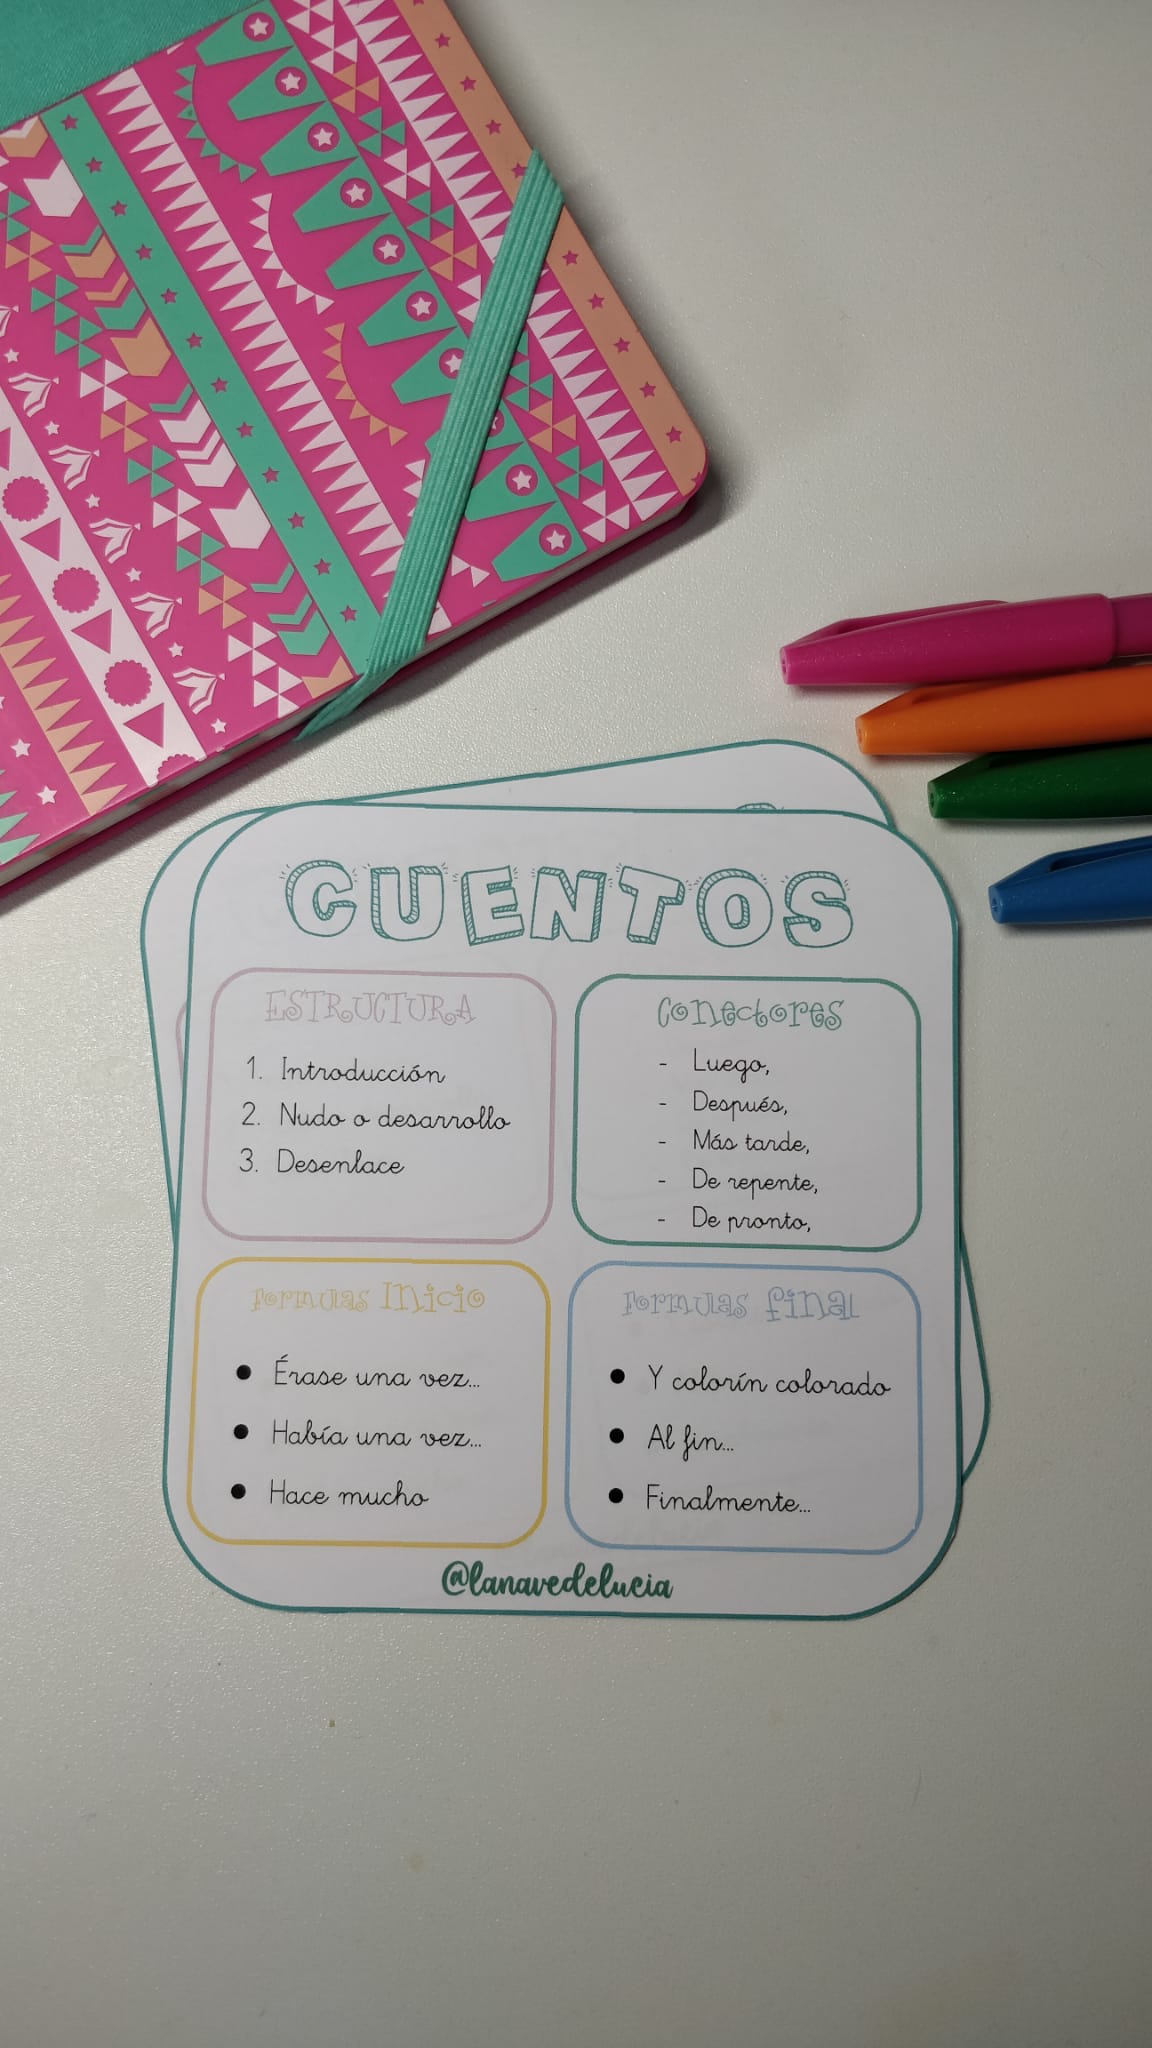 CUENTOS
ESTRUCTURA
1. Introducción
2. Nudo o desarrollo
3. Desenlace
Conectores
- Luego,
- Después,
- Más tarde,
- De repente,
- De pronto,
Formulas Inicio
• Érase una vez...
• Había una vez...
• Hace mucho
Formulas final
• Y colorín colorado
• Al fin...
• Finalmente...
@lanavedelucia